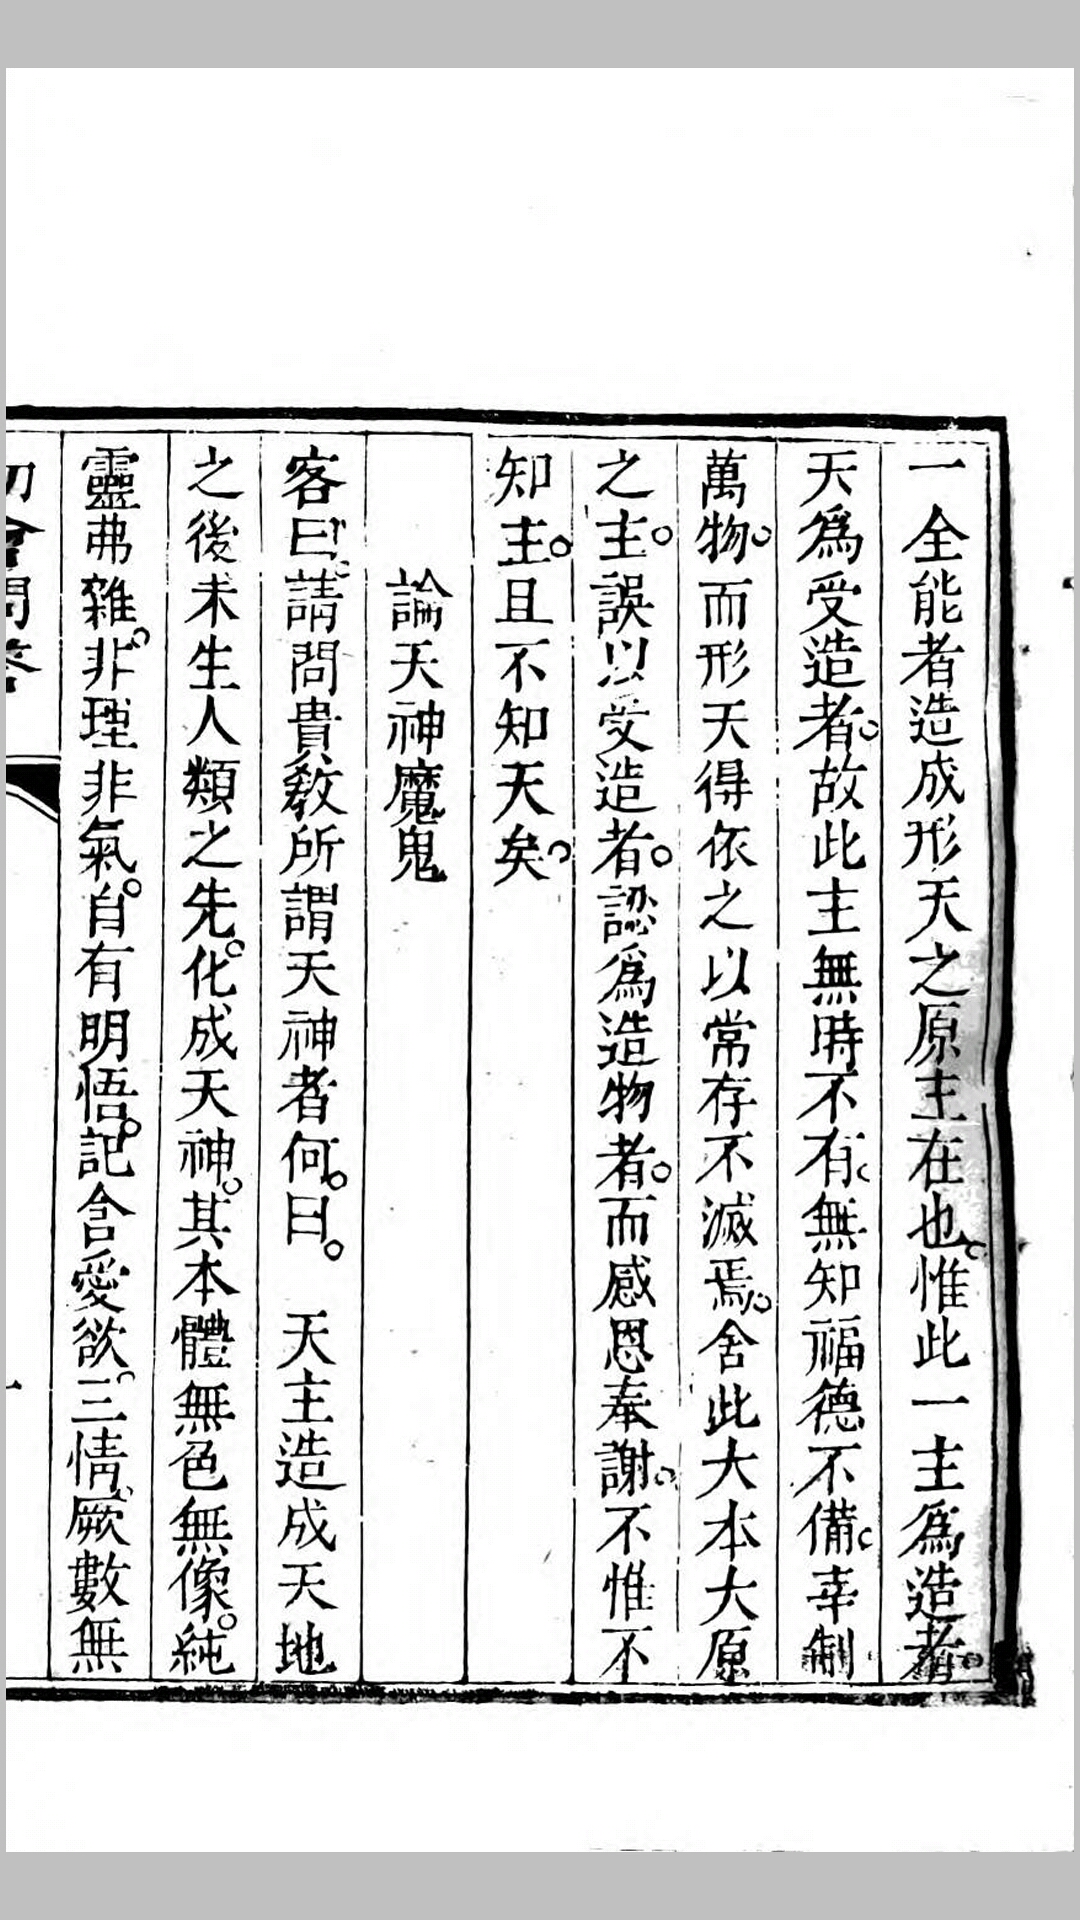 一全能者造成形天之原主在也。惟此一主爲造者。
天爲受造者。故此主無時不有。無知福德不備。幸制
萬物。而形天得依之以常存不滅焉。舍此大本大原
之主。誤以受造者。認爲造物者。而感恩奉謝。不惟不
知主。且不知天矣。
論天神魔鬼
客曰。請問貴教所謂天神者何。曰。 天主造成天地
之後未生人類之先。化成天神。其本體無色無像。純
靈弗雜。非理非氣。自有明悟。記含愛欲。三情。厥數無
初會問答